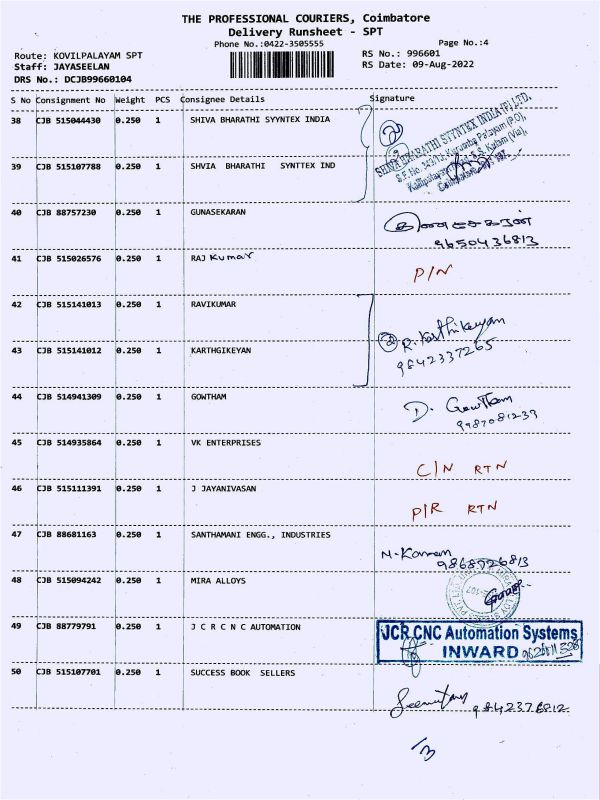 THE PROFESSIONAL COURIERS, Coimbatore
Delivery Runsheet - SPT
Phone No.:0422-3505555
Page No.:4
Route: KOVILPALAYAM SPT
RS No.: 996601
Staff: JAYASEELAN
RS Date: 09-Aug-2022
DRS No.: DCJB99660104
S No Consignment No Weight PCS Consignee Details Signature
38 CJB 515044430 0.250 1 SHIVA BHARATHI SYYNTEX INDIA
2
SHIVA BHARATHI SYYNTEX INDIA (P) LTD.
S.F. No. 343/13, Kurumba Palayam (P.O),
39 CJB 515107788 0.250 1 SHVIA BHARATHI SYNTTEX IND
40 CJB 88757230 0.250 1 GUNASEKARAN
குணசேகரன்
9650436813
41 CJB 515026576 0.250 1 RAJ Kumar
P/N
42 CJB 515141013 0.250 1 RAVIKUMAR
2 R. Karthikeyan
9842337265
43 CJB 515141012 0.250 1 KARTHGIKEYAN
44 CJB 514941309 0.250 1 GOWTHAM
D. Gowtham
9987081239
45 CJB 514935864 0.250 1 VK ENTERPRISES
C/N RTN
46 CJB 515111391 0.250 1 J JAYANIVASAN
P/R RTN
47 CJB 88681163 0.250 1 SANTHAMANI ENGG., INDUSTRIES
9868726813
48 CJB 515094242 0.250 1 MIRA ALLOYS
49 CJB 88779791 0.250 1 J C R C N C AUTOMATION
JCR CNC Automation Systems
INWARD
50 CJB 515107701 0.250 1 SUCCESS BOOK SELLERS
9842376812